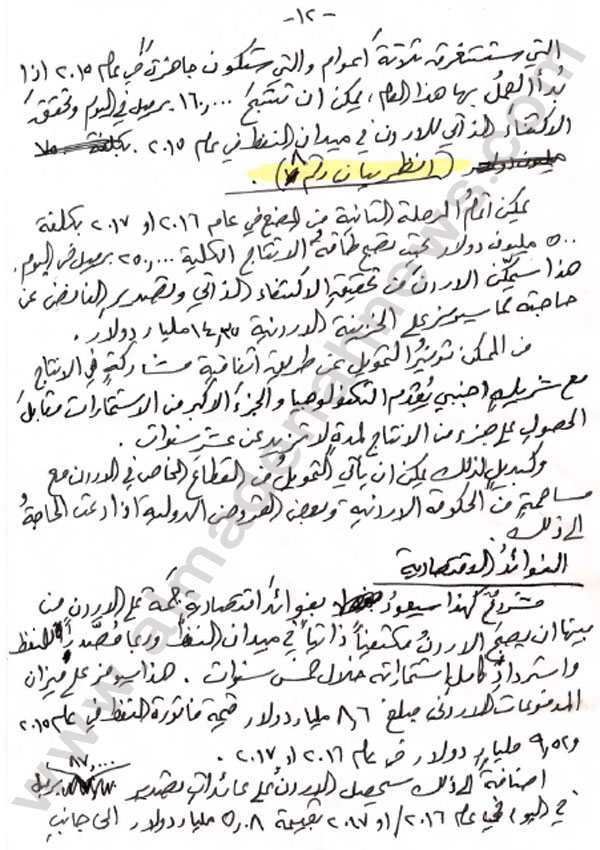 -١٢-
التي ستستغرق ثلاثة أعوام والتي ستكون جاهزة في عام ٢٠١٥ اذا
بُدأ العمل بها هذا العام، يمكن ان تنتج ١٦٠,٠٠٠ برميل في اليوم وتحقق
الاكتفاء الذاتي للاردن في ميدان النفط في عام ٢٠١٥. بكلفة ٧٠
مليون دولار (انظر بيان رقم ٨).
يمكن اتمام المرحلة الثانية من المصنع في عام ٢٠١٦ او ٢٠١٧ بكلفة
٥٠٠ مليون دولار بحيث تصبح طاقة الانتاج الكلية ٢٥٠,٠٠٠ برميل في اليوم.
هذا سيمكّن الاردن من تحقيق الاكتفاء الذاتي وتصدير الفائض عن
حاجته مما سيوفر على الخزينة الاردنية ١٤,٣٥ مليار دولار.
من الممكن توفير التمويل عن طريق اتفاقية مشاركة في الانتاج
مع شريك اجنبي يُقدم التكنولوجيا والجزء الأكبر من الاستثمارات مقابل
الحصول على جزء من الانتاج لمدة لا تزيد عن عشر سنوات.
وكبديل لذلك يمكن ان يأتي التمويل من القطاع الخاص في الاردن مع
مساهمة من الحكومة الاردنية وبعض القروض الدولية اذا دعت الحاجة
الى ذلك.
الفوائد الاقتصادية
مشروع كهذا سيعود بفوائد اقتصادية جمة على الاردن من
بينها ان يصبح الاردن مكتفياً ذاتياً في ميدان النفط وربما مُصدّراً للنفط
واسترداد كامل استثماراته خلال خمس سنوات. هذا سيوفر على ميزان
المدفوعات الاردني مبلغ ٨,٦ مليار دولار قيمة فاتورة النفط في عام ٢٠١٥
و ٩,٥٢ مليار دولار في عام ٢٠١٦ او ٢٠١٧.
اضافة الى ذلك سيحصل الاردن على عائدات تصدير ٨٧,٠٠٠ برميل
في اليوم في عام ٢٠١٦/او ٢٠١٧ بقيمة ٥,٠٨ مليار دولار الى جانب
www.almadenahnews.com